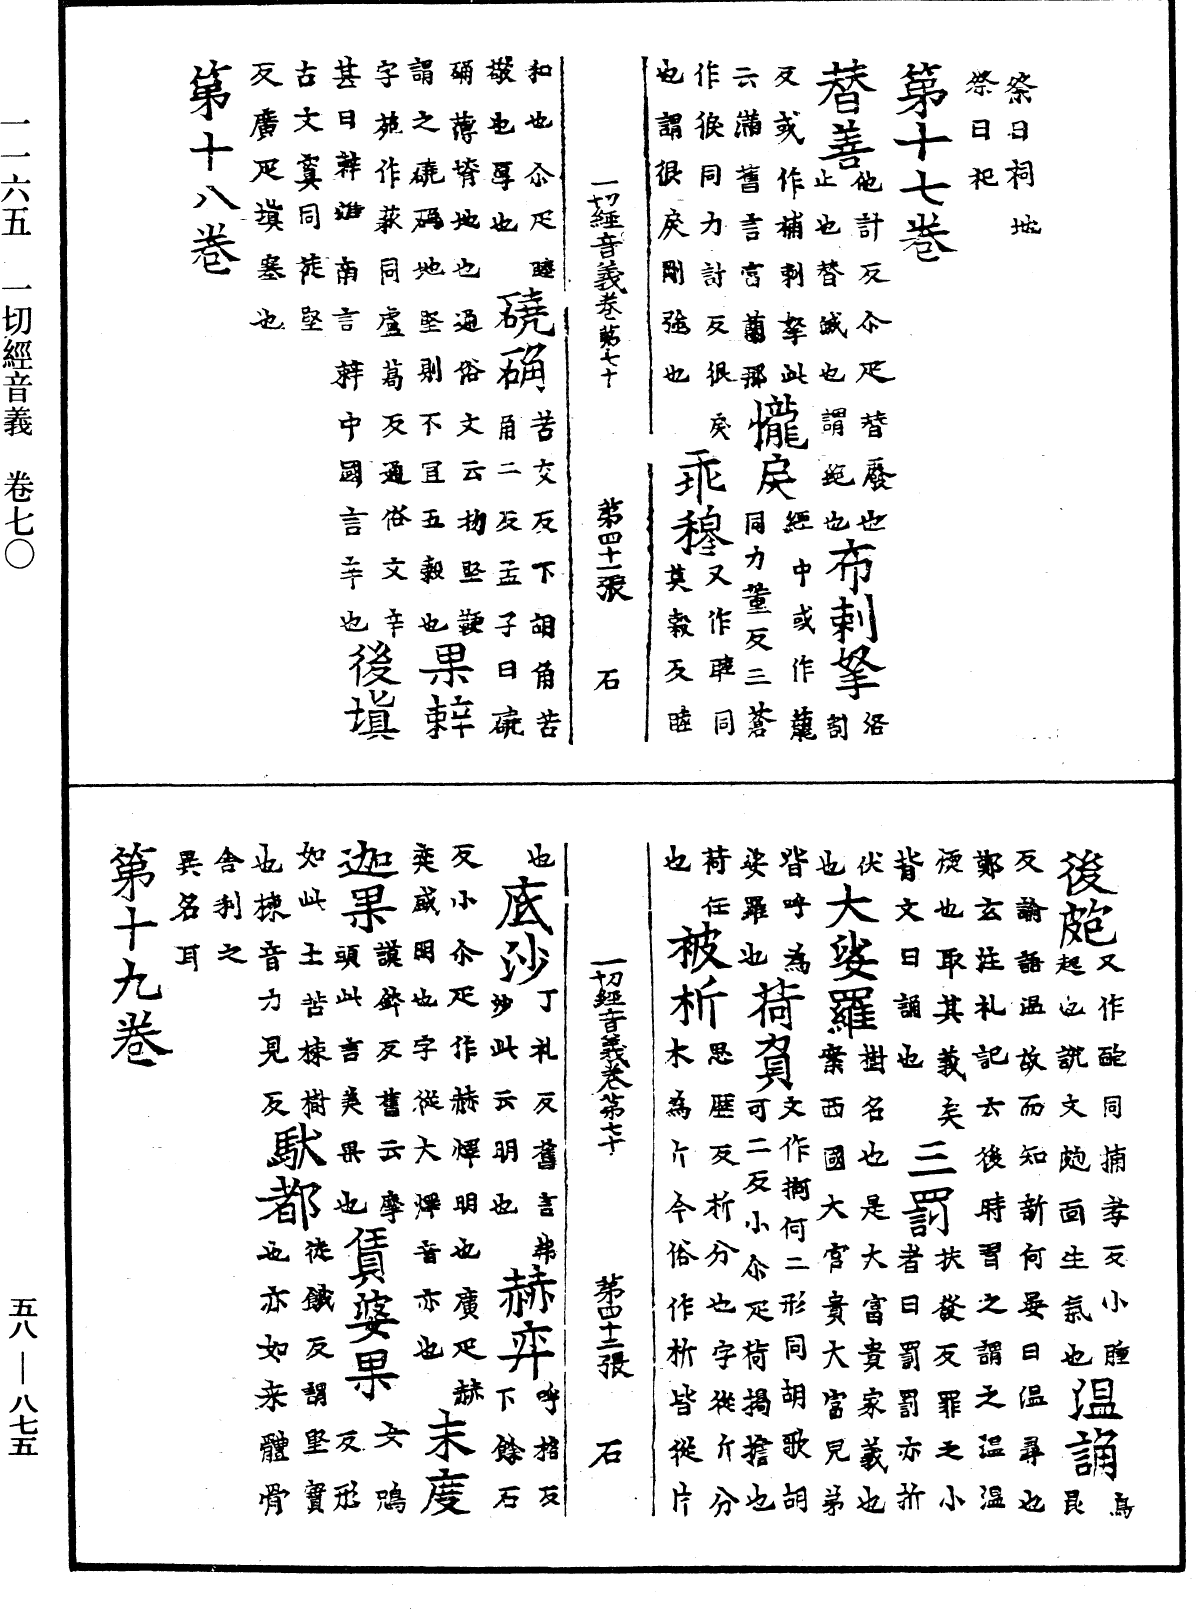 祭日祠地
祭日祀
第十七卷
替善 他計反尒疋替廢也
止也替滅也謂絶也
布刺拏 洛
割
反或作補刺拏此
云滿舊言富蘭那
㦬戾 經中或作籠
同力董反三蒼
作很同力計反很戾
也謂很戾剛強也
乖穆 又作睦同
莫穀反睦
一切經音義卷第七十 第四十一張 石
和也尒疋睦
敬也厚也
磽确 苦交反下胡角苦
角二反孟子曰磽
确薄瘠地也通俗文云物堅鞕
謂之磽确地堅則不宜五穀也
果辢
字苑作同盧葛反通俗文辛
甚曰辢江南言辢中國言辛也
後塡
古文窴同徒堅
反廣疋塡塞也
第十八卷
後皰 又作同捕孝反小腫
起也說文皰面生氣也
温誦 烏
昆
反論語温故而知新何晏曰温尋也
鄭玄注礼記云後時習之謂之温温
煗也取其義矣
背文曰誦也
三罰 扶發反罪之小
者曰罰罰亦折
伏
也
大娑羅 樹名也是大富貴家義也
案西國大官貴大富兄弟
皆呼為
娑羅也
荷負 文作何二形同胡歌胡
可二反小尒疋荷揭擔也
荷任
也
被析 思歷反析分也字從斤分
木為斤今俗作析皆從片
一切經音義卷第七十 第四十二張 石
也
底沙 丁礼反舊言弗
沙此云明也
赫弈 呼格反
下餘石
反小尒疋作赫煇明也廣疋赫
弈盛明也字從大煇音亦也
末度
迦果 謨鉢反舊云摩
頭此言美果也
賃婆果 女鴆
反形
如此土苦楝樹
也楝音力見反
馱都 徒餓反謂堅實
也亦如來體骨
舍利之
異名耳
第十九卷
一一六五 一切經音義 卷七〇
五八—八七五